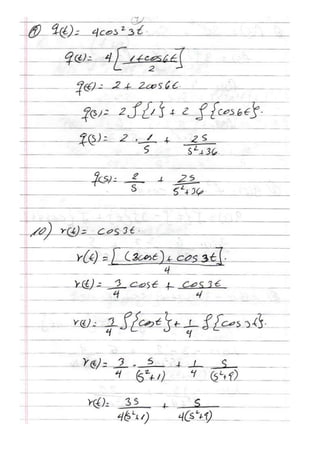 (7)
9) q(t) = 4cos² 3t
q(t) = 4 [ 1+cos6t / 2 ]
q(t) = 2 + 2cos6t
q(s) = 2 ∫{1} + 2 ∫{cos6t}
q(s) = 2 · 1/S + 2S/S²+36
q(s) = 2/S + 2S/S²+36
10) r(t) = cos 3t
r(t) = [ (3cost) + cos 3t ] / 4
r(t) = 3/4 cost + cos 3t/4
r(t) = 3/4 ∫{cost} + 1/4 ∫{cos 3t}
r(t) = 3/4 · S/(S²+1) + 1/4 S/(S²+9)
r(t) = 3S/4(S²+1) + S/4(S²+9)